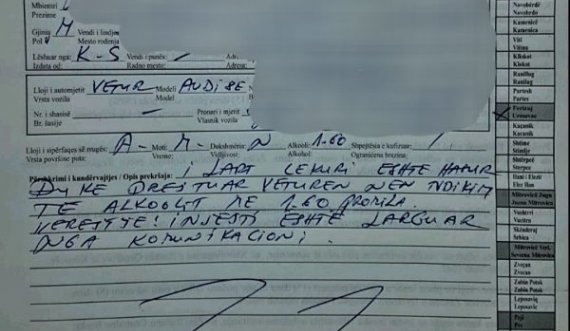 Mbiemri
Prezime
Gjinia M Vendi i lindjes
Pol Mesto rođenja
Lëshuar nga: K-S Vendi i punës: Adr.
Izdata od: Radno mesto: Adresa:
Lloji i automjetit VETUR Modeli AUDI SE
Vrsta vozila Model
Nr. i shasisë Pronari i mjetit
Br. šasije Vlasnik vozila
Lloji i sipërfaqes së rrugës: A- Moti: M- Dukshmëria: N Alkooli: 1.60 Shpejtësia e kufizuar:
Vrsta površine puta: Vreme: Vidljivost: Alkohol: Ograničena brzina:
Përshkrimi i kundërvajtjes / Opis prekršaja: I LART CEKURI ËSHTE HASUR
DUKE DREJTUAR VETUREN NEN NDIKIM
TE ALKOOLIT ME 1.60 PROMILA.
VEREJTJE! I NJEJTI ËSHTE LARGUAR
NGA KOMUNIKACIONI.
Novobërdë
Novobrdo
Kamenicë
Kamenica
Viti
Vitina
Kllokot
Klokot
Ranillug
Ranilug
Partesh
Parteš
Ferizaj
Uroševac
Kaçanik
Kačanik
Shtime
Štimlje
Shtërpcë
Štrpce
Hani i Elezit
Elez Han
Mitrovicë Jugu
Južna Mitrovica
Vushtrri
Vučitrn
Skënderaj
Srbica
Mitrovicë Veri
Severna Mitrovica
Zveçan
Zvečan
Zubin Potok
Zubin Potok
Leposaviq
Leposavić
Pejë
Peć